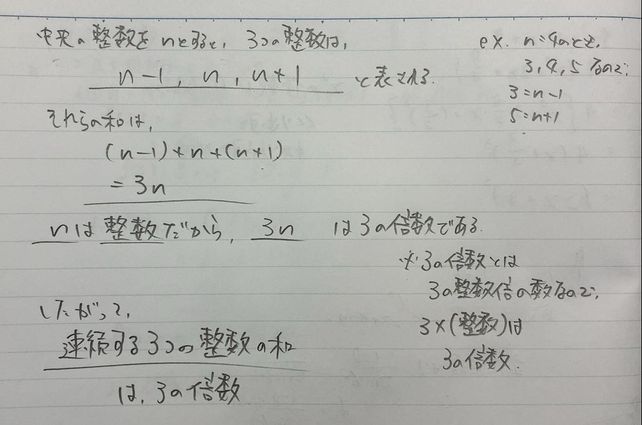 中央の整数をnとすると、3つの整数は、
n-1, n, n+1 と表される.
それらの和は、
(n-1)+n+(n+1)
=3n
nは整数だから、3n は3の倍数である.
したがって、
連続する3つの整数の和
は、3の倍数
ex. n=4のとき、
3,4,5なので、
3=n-1
5=n+1
※3の倍数とは
3の整数倍の数なので、
3×(整数)は
3の倍数.